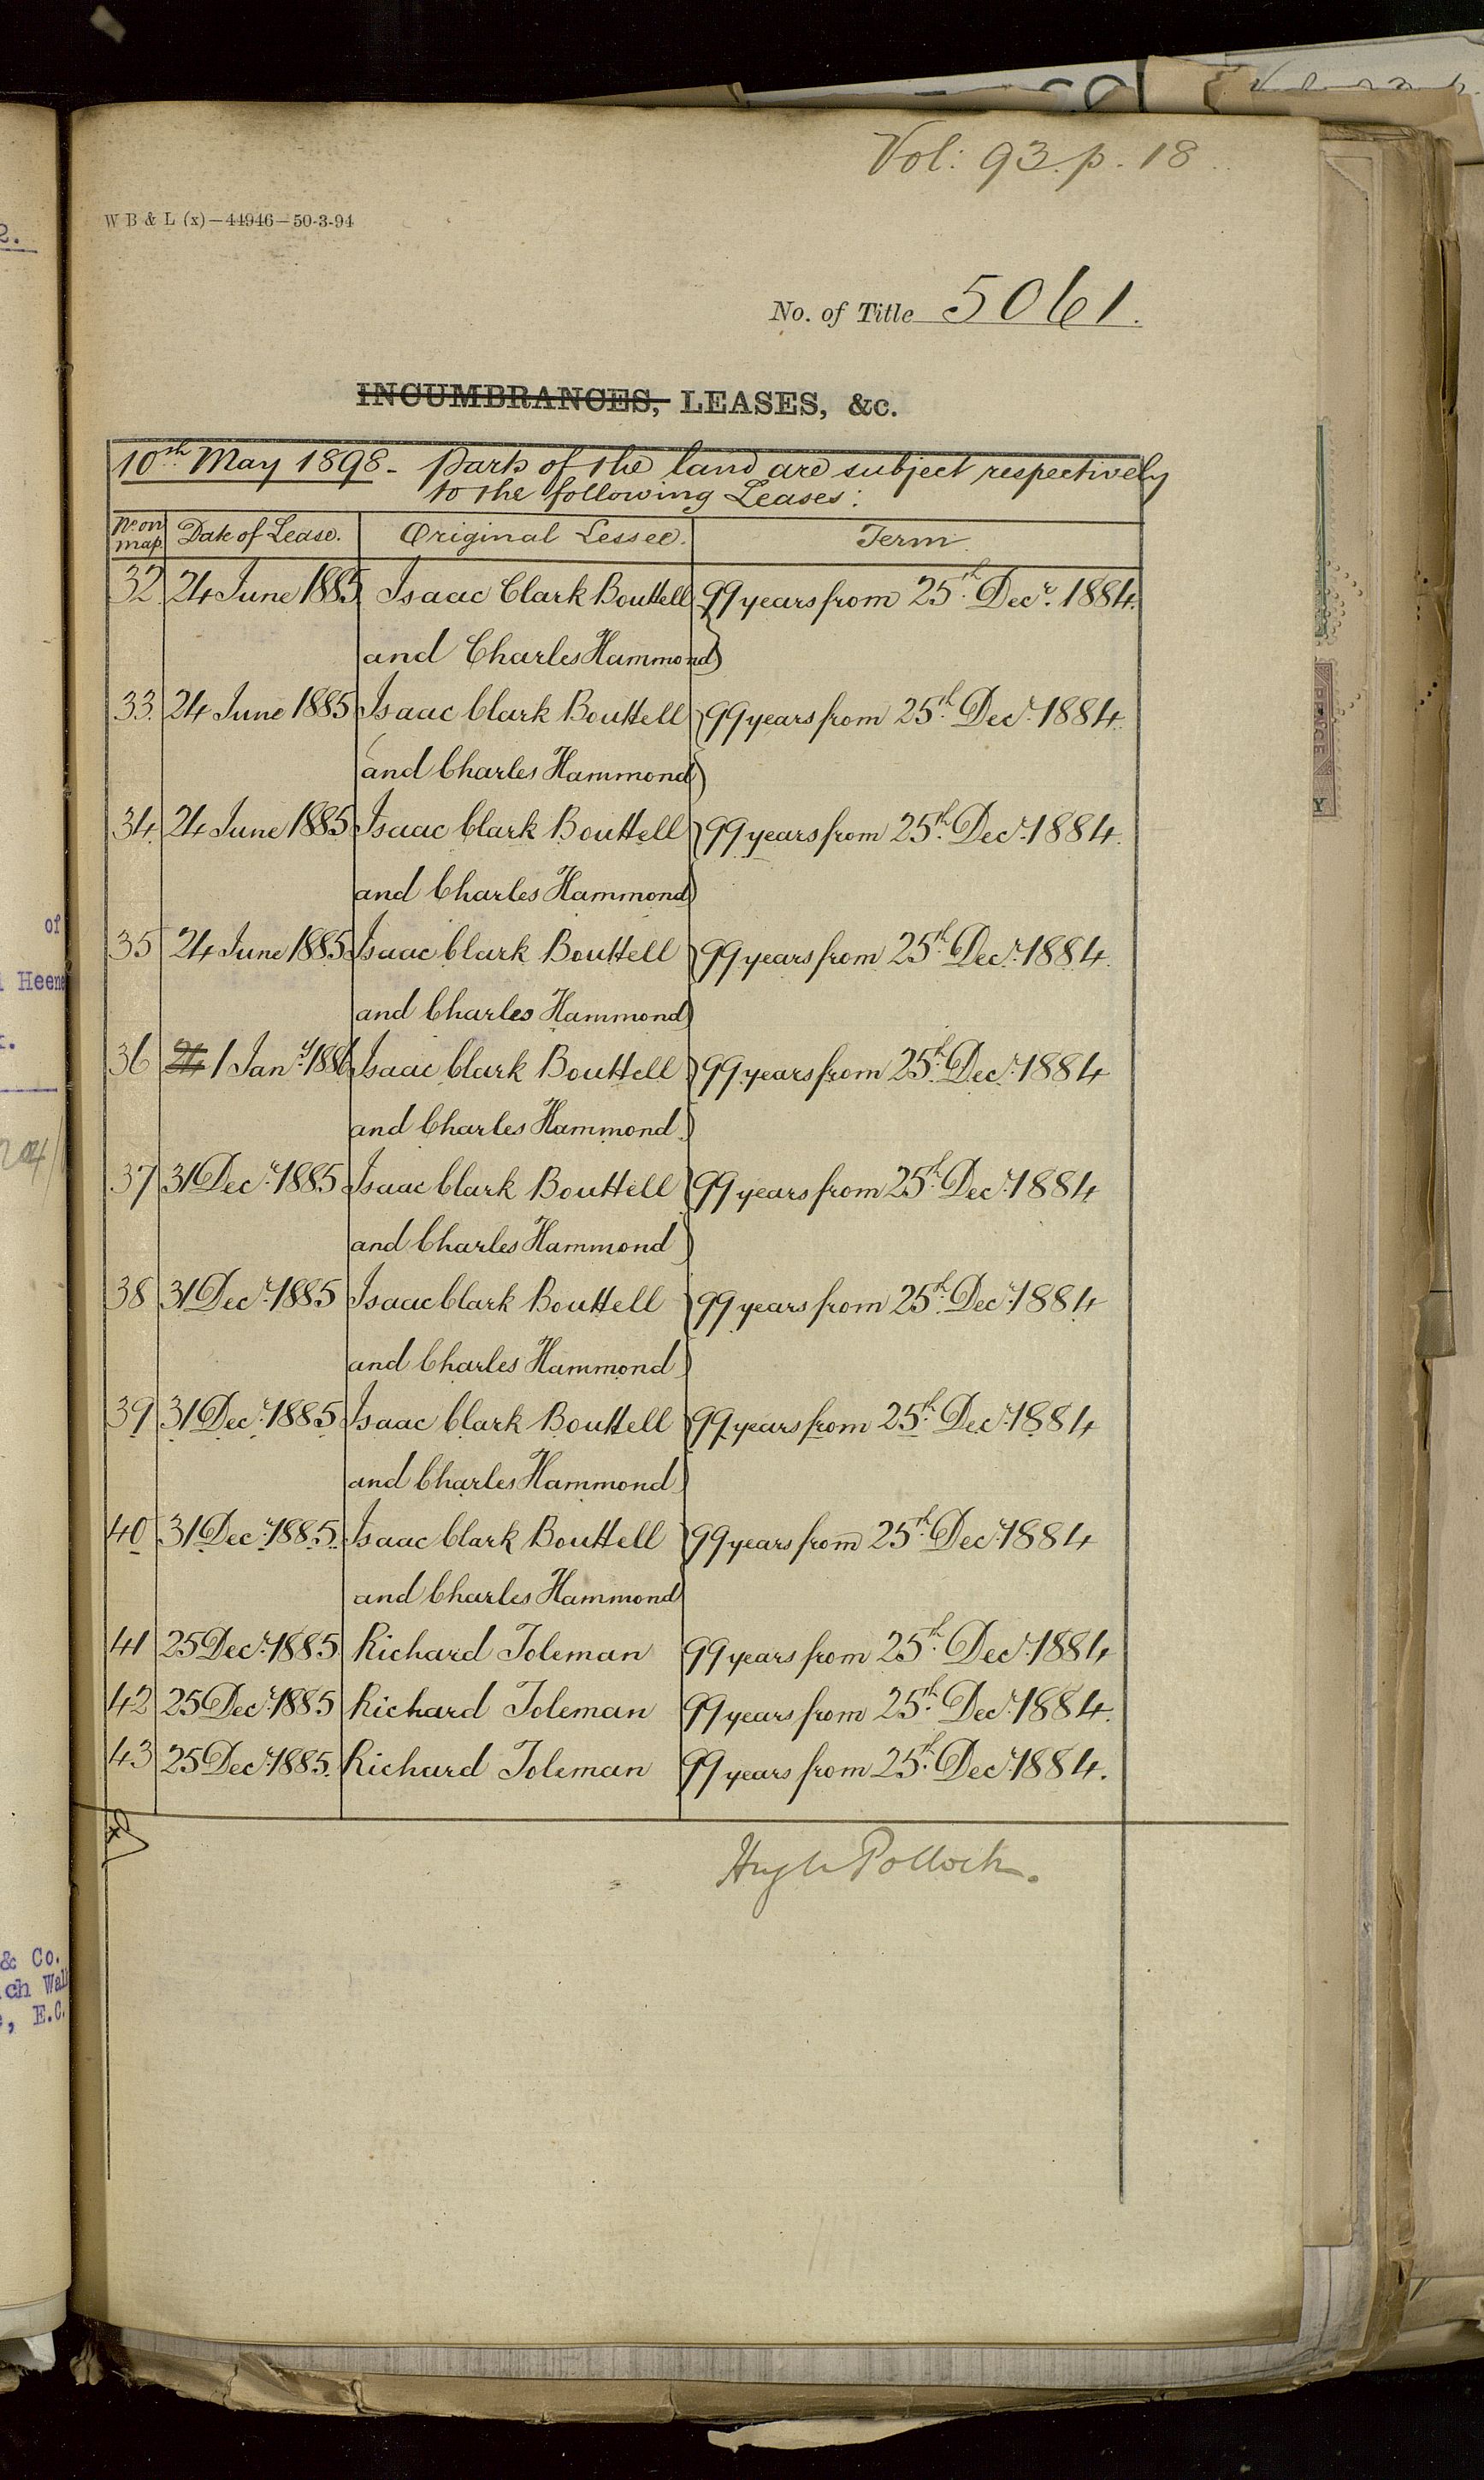 Vol: 93. p. 18
W B & L (x)—44946—50-3-94
No. of Title 5061.
INCUMBRANCES, LEASES, &c.
10th May 1898 - Parts of the land are subject respectively
to the following Leases:
No. on map Date of Lease. Original Lessee. Term
32 24 June 1885 Isaac Clark Bouttell 99 years from 25th Decr. 1884.
and Charles Hammond
33. 24 June 1885 Isaac Clark Bouttell 99 years from 25th Decr. 1884.
and Charles Hammond
34. 24 June 1885 Isaac Clark Bouttell 99 years from 25th Decr. 1884.
and Charles Hammond
35 24 June 1885 Isaac Clark Bouttell 99 years from 25th Decr. 1884.
and Charles Hammond
36 24 1 Jany. 1886 Isaac Clark Bouttell 99 years from 25th Decr. 1884
and Charles Hammond
37 31 Decr. 1885 Isaac Clark Bouttell 99 years from 25th Decr. 1884
and Charles Hammond
38 31 Decr. 1885 Isaac Clark Bouttell 99 years from 25th Decr. 1884
and Charles Hammond
39 31 Decr. 1885 Isaac Clark Bouttell 99 years from 25th Decr. 1884
and Charles Hammond
40 31 Decr. 1885. Isaac Clark Bouttell 99 years from 25th Decr. 1884
and Charles Hammond
41 25 Decr. 1885 Richard Toleman 99 years from 25th Decr. 1884
42 25 Decr. 1885 Richard Toleman 99 years from 25th Decr. 1884.
43 25 Decr. 1885. Richard Toleman 99 years from 25th Decr. 1884.
Hugh Pollock.
2.
of
Heene
& Co.
ch Wall
, E.C.
PENCE
Y